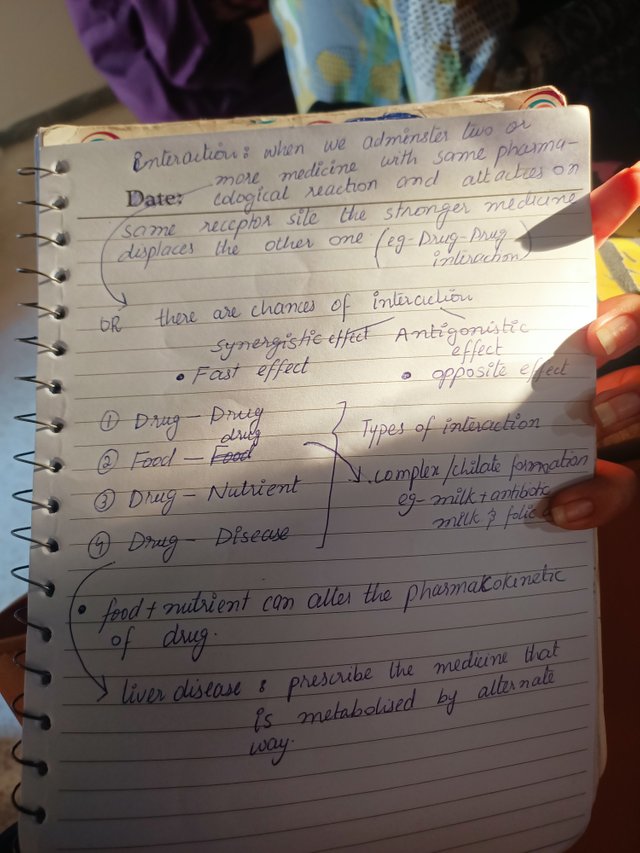 Interaction: when we adminster two or
more medicine with same pharma-
Date: cological reaction and attatches on
same receptor site the stronger medicine
displaces the other one (eg-Drug-Drug
interaction)
OR there are chances of interaction
Synergistic effect Antigonistic
effect
• Fast effect • opposite effect
① Drug - Drug
drug
② Food - Food
③ Drug - Nutrient
④ Drug - Disease
Types of interaction
complex/chilate formation
eg- milk + antibotic
milk & folic
• food + nutrient can alter the pharmakokinetic
of drug.
liver disease : prescribe the medicine that
is metabolised by alternate
way.